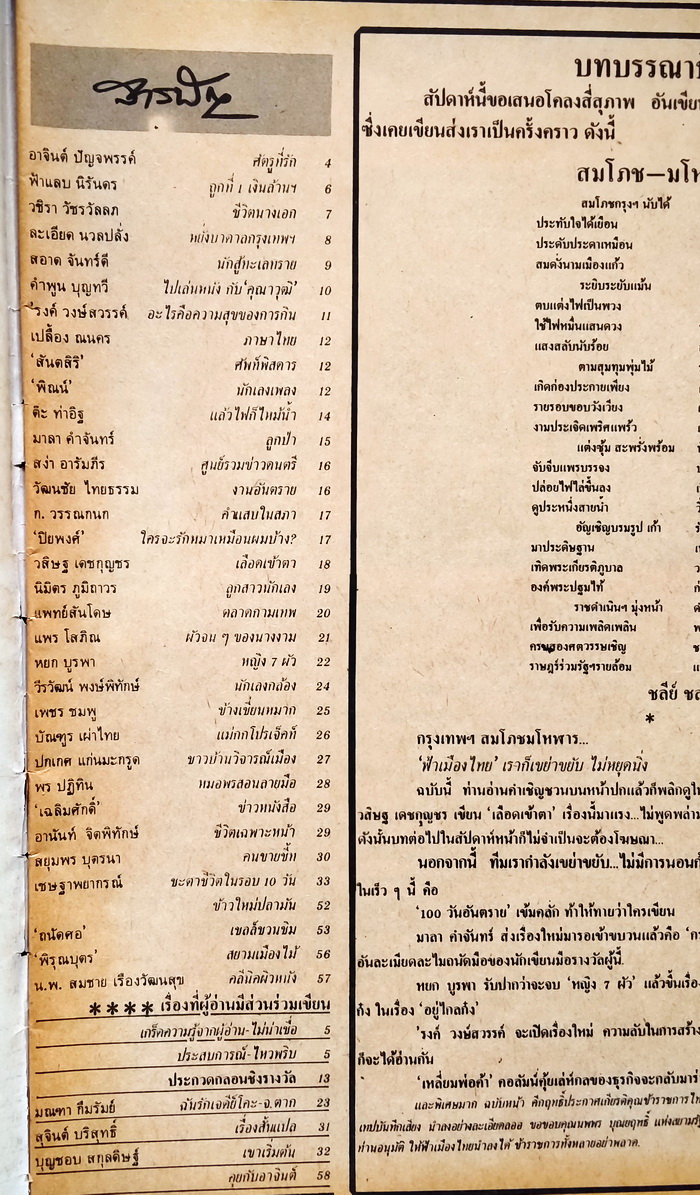 สารบัญ
อาจินต์ ปัญจพรรค์ ศัตรูที่รัก 4
ฟ้าแลบ นิรันดร ถูกที่ 1 เงินล้านฯ 6
วชิรา วัชรวัลลภ ชีวิตนางเอก 7
ละเอียด นวลปลั่ง หยั่งบาดาลกรุงเทพฯ 8
สอาด จันทร์ดี นักสู้ทะเลทราย 9
คำพูน บุญทวี ไปเล่นหนัง กับ‘คุณาวุฒิ’ 10
’รงค์ วงษ์สวรรค์ อะไรคือความสุขของการกิน 11
เปลื้อง ณนคร ภาษาไทย 12
‘สันตสิริ’ ศัพท์พิสดาร 12
‘พิณน์’ นักเลงเพลง 12
ต๊ะ ท่าอิฐ แล้วไฟก็ไหม้น้ำ 14
มาลา คำจันทร์ ลูกป่า 15
สง่า อารัมภีร ศูนย์รวมข่าวดนตรี 16
วัฒนชัย ไทยธรรม งานอันตราย 16
ก. วรรณกนก คำแสบในสภา 17
‘ปิยพงศ์’ ใครจะรักหมาเหมือนผมบ้าง? 17
วสิษฐ เดชกุญชร เลือดเข้าตา 18
นิมิตร ภูมิถาวร ลูกสาวนักเลง 19
แพทย์สันโดษ ตลาดกามเทพ 20
แพร โสภิณ ผัวจน ๆ ของนางงาม 21
หยก บูรพา หญิง 7 ผัว 22
วีรวัฒน์ พงษ์พิทักษ์ นักเลงกล้อง 24
เพชร ชมพู ข้างเขี่ยนหมาก 25
บัณฑูร เผ่าไทย แม่กกโปรเจ็คท์ 26
ปกเกศ แก่นมะกรูด ขาวบ้านวิจารณ์เมือง 27
พร ปฏิทิน หมอพรสอนลายมือ 28
‘เฉลิมศักดิ์’ ข่าวหนังสือ 29
อานันท์ จิตพิทักษ์ ชีวิตเฉพาะหน้า 29
สยุมพร บุตรนา คนขายขี้ท 30
เชษฐาพยากรณ์ ชะตาชีวิตในรอบ 10 วัน 33
ข้าวใหม่ปลามัน 52
‘ถนัดศอ’ เชลล์ชวนชิม 53
‘พิรุณบุตร’ สยามเมืองไม้ 56
น.พ. สมชาย เรืองวัฒนสุข คลีนิคผิวหนัง 57
✱✱✱✱ เรื่องที่ผู้อ่านมีส่วนร่วมเขียน
เกร็ดความรู้จากผู้อ่าน-ไม่น่าเชื่อ 5
ประสบการณ์-ไหวพริบ 5
ประกวดกลอนชิงรางวัล 13
มณฑา กิมรัมย์ ฉันรักเจดีย์โคะ-จ.ตาก 23
สุจินต์ บริสุทธิ์ เรื่องสั้นแปล 31
บุญชอบ สกุลดิษฐ์ เขาเริ่มต้น 32
คุยกับอาจินต์ 58
บทบรรณา
สัปดาห์นี้ขอเสนอโคลงสี่สุภาพ อันเขีย
ซึ่งเคยเขียนส่งเราเป็นครั้งคราว ดังนี้
สมโภช—มโห
สมโภชกรุงฯ นับได้
ประทับใจได้เยือน
ประดับประดาเหมือน
สมดั่งนามเมืองแก้ว
ระยิบระยับแม้น
ตบแต่งไฟเป็นพวง
ใช้ไฟหมื่นแสนดวง
แสงสลับนับร้อย
ตามสุมทุมพุ่มไม้
เกิดก่องประกายเพียง
รายรอบขอบวังเวียง
งามประเจิดเพริศแพร้ว
แต่งซุ้ม สะพรั่งพร้อม
จับจีบแพรบรรจง
ปล่อยไฟไล่ขึ้นลง
ดูประหนึ่งสายน้ำ
อัญเชิญบรมรูป เก้า
มาประดิษฐาน
เทิดพระเกียรติภูบาล
องค์พระปฐมไท้
ราชดำเนินฯ มุ่งหน้า
เพื่อรับความเพลิดเพลิน
ครบสองศตวรรษเชิญ
ราษฎร์ร่วมรัฐฯรายล้อม
ชลีย์ ชล
*
กรุงเทพฯ สมโภชมโหฬาร...
‘ฟ้าเมืองไทย’ เราก็เขย่าขยับ ไม่หยุดนิ่ง
ฉบับนี้ ท่านอ่านคำเชิญชวนบนหน้าปกแล้วก็พลิกดูใ
วสิษฐ เดชกุญชร เขียน ‘เลือดเข้าตา’ เรื่องนี้มาแรง...ไม่พูดพล่าม
ดังนั้นบทต่อไปในสัปดาห์หน้าก็ไม่จำเป็นจะต้องโฆษณา...
นอกจากนี้ ทีมเรากำลังเขย่าขยับ...ไม่มีการนอนก
ในเร็ว ๆ นี้ คือ
‘100 วันอันตราย’ เข้มคลัก ท้าให้ทายว่าใครเขียน
มาลา คำจันทร์ ส่งเรื่องใหม่มารอเข้าขบวนแล้วคือ
อันละเมียดละไมถนัดมือของนักเขียนมือรางวัลผู้นี้
หยก บูรพา รับปากว่าจะจบ ‘หญิง 7 ผัว’ แล้วขึ้นเรื่อง
ก๋ง ในเรื่อง ‘อยู่ไกลก๋ง’
’รงค์ วงษ์สวรรค์ จะเปิดเรื่องใหม่ ความลับในการสร้าง
ก็จะได้อ่านกัน
‘เหลี่ยมพ่อค้า’ คอลัมน์คุ้ยเล่ห์กลของธุรกิจจะกลับมา
และพิเศษมาก ฉบับหน้า ศึกฤทธิ์ประกาศเกียรติคุณข้าราชการไท
เทปบันทึกเสียง นำลงอย่างละเอียดลออ ขอขอบคุณนพพร บุณยฤทธิ์ แห่งสยามรัฐ
ท่านอนุมัติ ให้ฟ้าเมืองไทยนำลงได้ ข้าราชการทั้งหลายอย่าพลาด.